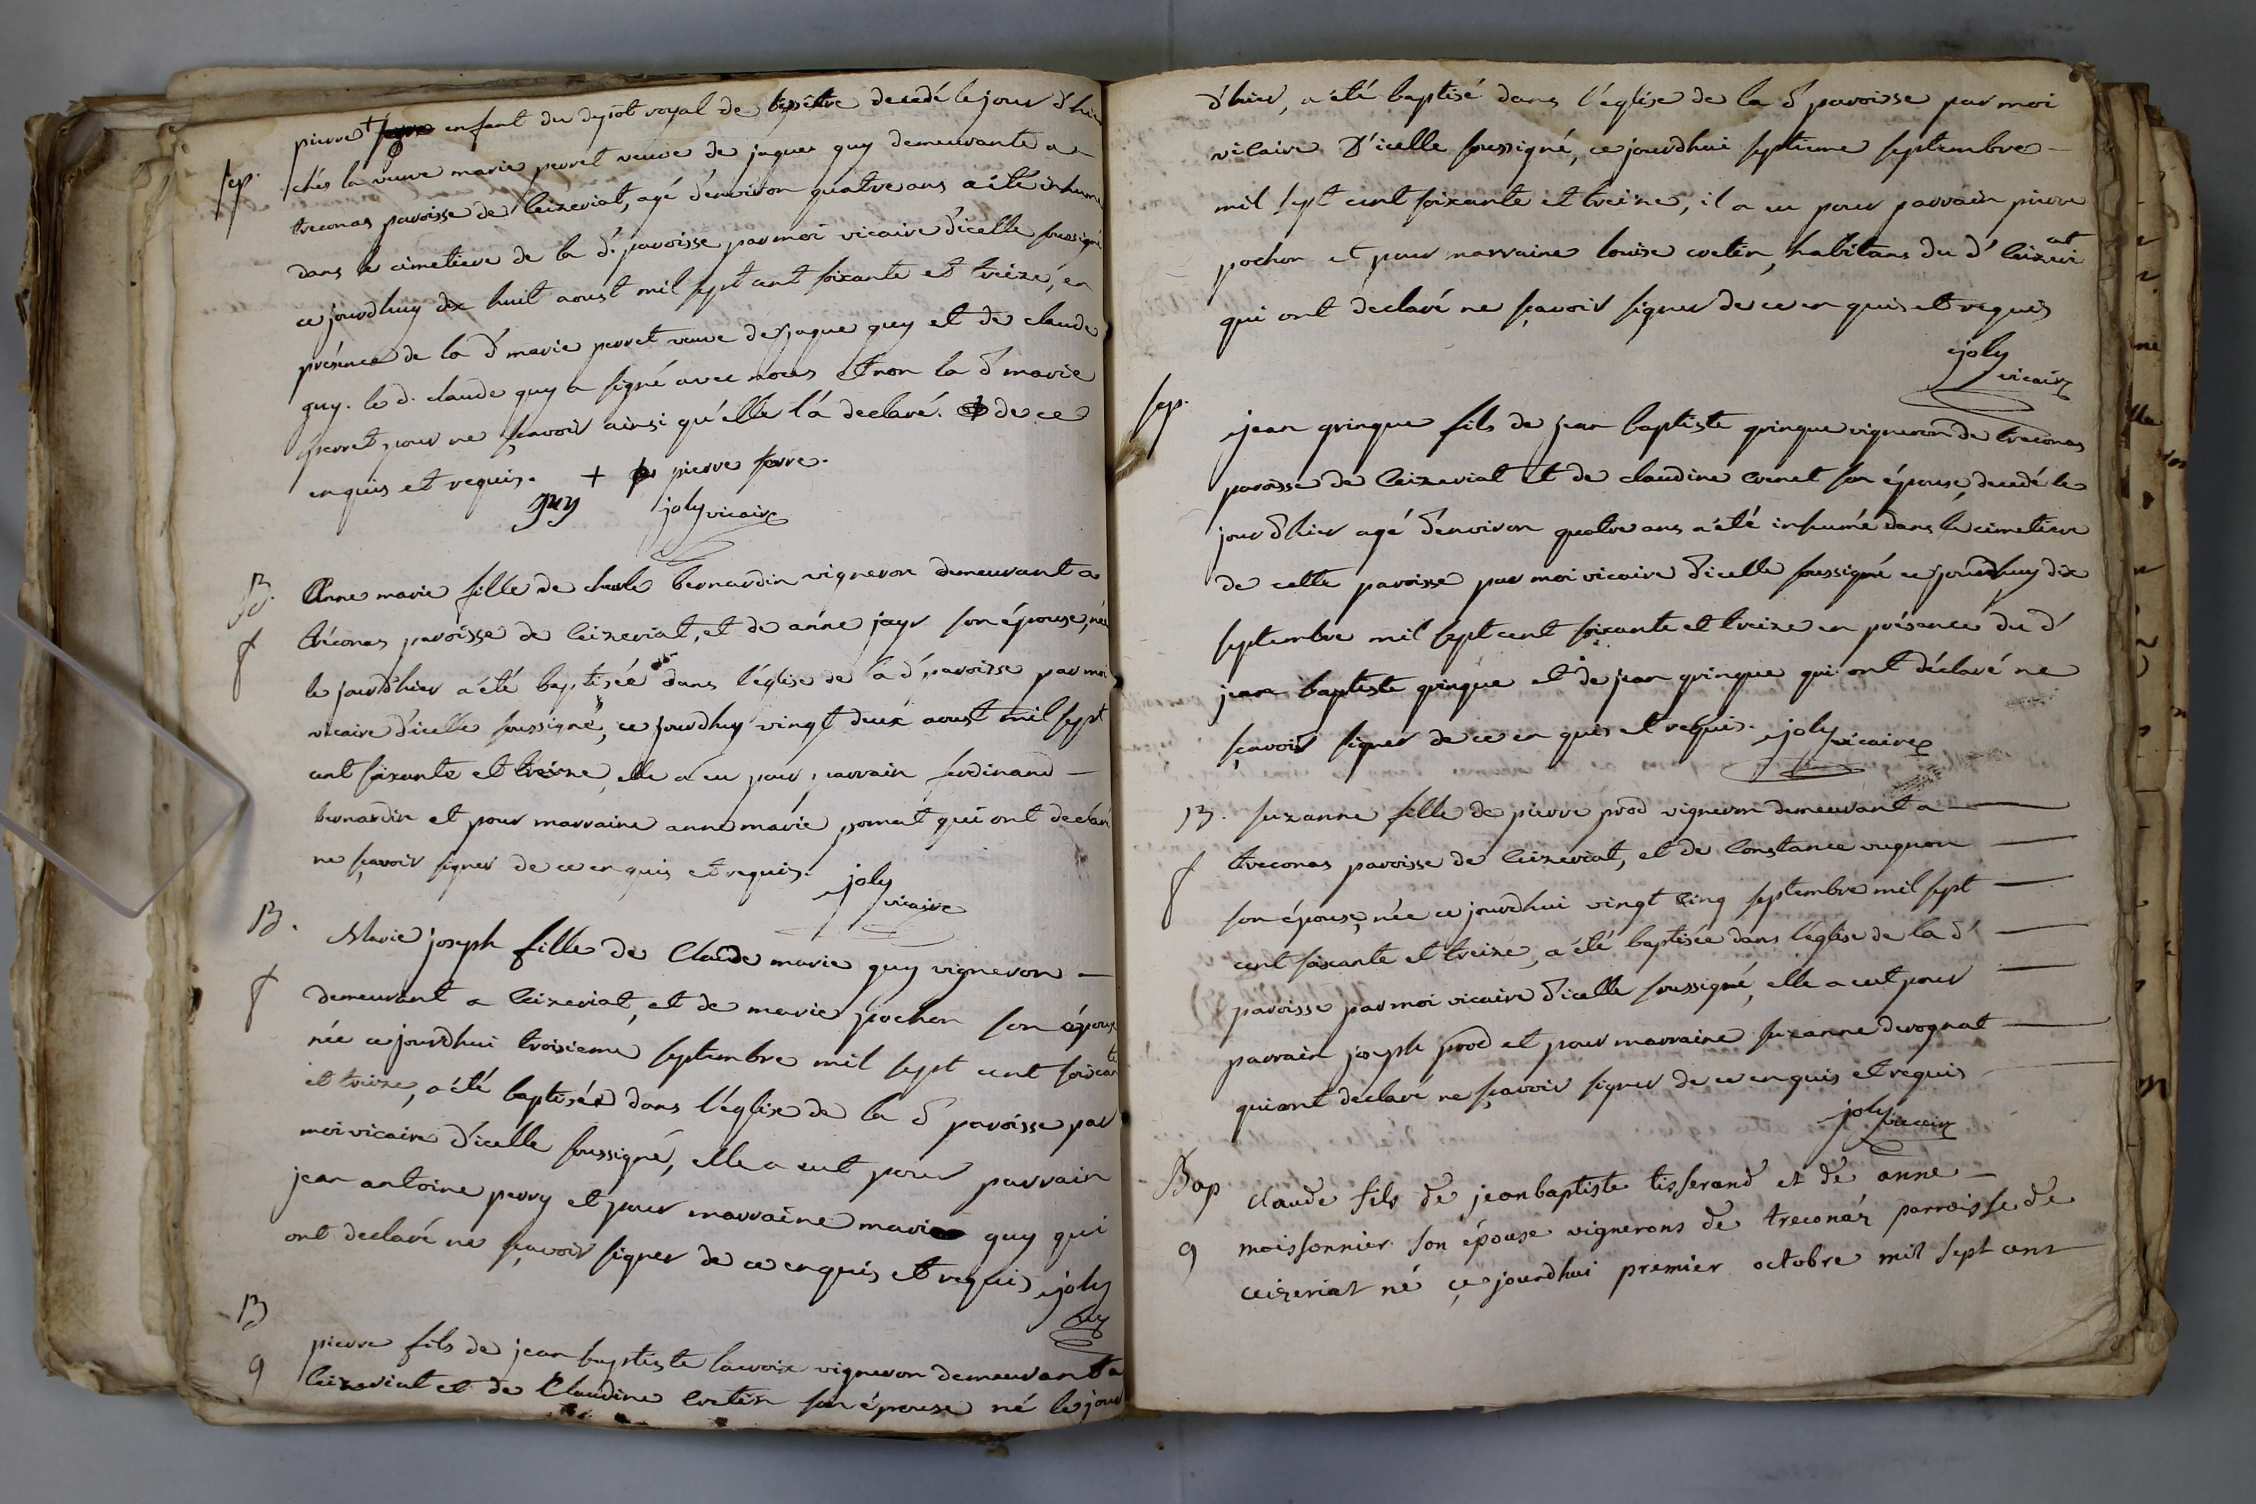 pierre + enfant du depôt royal de bissêtre decedé le jour d'hier
sep. chés la veuve marie perret veuve de jaque guy demeurante a
treconas paroisse de Ceizeriat, agé d'environ quatre ans a été inhumé
dans le cimetiere de la d. paroisse par moi vicaire d'icelle soussigné
ce jourdhuy dix huit aoust mil sept cent soixante et treize, en
présence de la d marie perret veuve de jaque guy et de claude
guy. le d. claude guy a signé avec nous et non la d marie
perret pour ne sçavoir ainsi qu'elle l'a declaré. de ce
enquis et requis. + pierre
guy joly vicaire
B. Anne marie fille de charle bernardin vigneron demeurant a
f tréconas paroisse de Ceizeriat, et de anne jayr son épouse, née
le jour d'hier a été baptisée dans l'église de la d paroisse par moi
vicaire d'icelle soussigné, ce jourdhuy vingt deux aoust mil sept
cent soixante et treize, elle a eu pour parrain ferdinand
bernardin et pour marraine anne marie qui ont declaré
ne sçavoir signer de ce enquis et requis. joly
vicaire
B. Marie joseph fille de Claude marie guy vigneron
f demeurant a Ceizeriat, et de marie pochon son épouse
née ce jourdhui troisieme septembre mil sept cent soixante
et treize, a été baptisée dans l'église de la d paroisse par
moi vicaire d'icelle soussigné, elle a eut pour parrain
jean antoine perry et pour marraine marie guy qui
ont declaré ne sçavoir signer de ce enquis et requis joly
B pierre fils de jean baptiste lacroix vigneron demeurant a
g Ceizeriat et de Claudine cretin son épouse né le jour
d'hier, a été baptisé dans l'église de la d paroisse par moi
vicaire D'icelle soussigné, ce jourdhui septieme septembre
mil sept cent soixante et treize, il a eu pour parrain pierre
pochon et pour marraine louise cretin, habitans du d' Ceizeriat
qui ont declaré ne sçavoir signer de ce enquis et requis
joly
vicaire
sep. jean gringue fils de jean baptiste gringue vigneron de treconas
paroisse de Ceizeriat et de claudine son épouse, decedé le
jour d'hier agé d'environ quatre ans a été inhumé dans le cimetiere
de cette paroisse par moi vicaire d'icelle soussigné ce jourdhuy dix
septembre mil sept cent soixante et treize en présence du d
jean baptiste gringue et de jean gringue qui ont déclaré ne
sçavoir signer de ce enquis et requis. joly vicaire
B. suzanne fille de pierre prod vigneron demeurant a
f treconas paroisse de Ceizeriat, et de Constance
son épouse, née ce jourdhui vingt Cinq septembre mil sept
cent soixante et treize, a été baptisée dans l'église de la d'
paroisse par moi vicaire d'icelle soussigné, elle a eut pour
parrain joseph prod et pour marraine suzanne derognat
qui ont declaré ne sçavoir signer de ce enquis et requis
joly vicaire
Bap claude fils de jean baptiste tisserand et de anne
g moissonnier son épouse vignerons de treconaz parroisse de
ceizeriat né ce jourdhui premier octobre mil sept cent